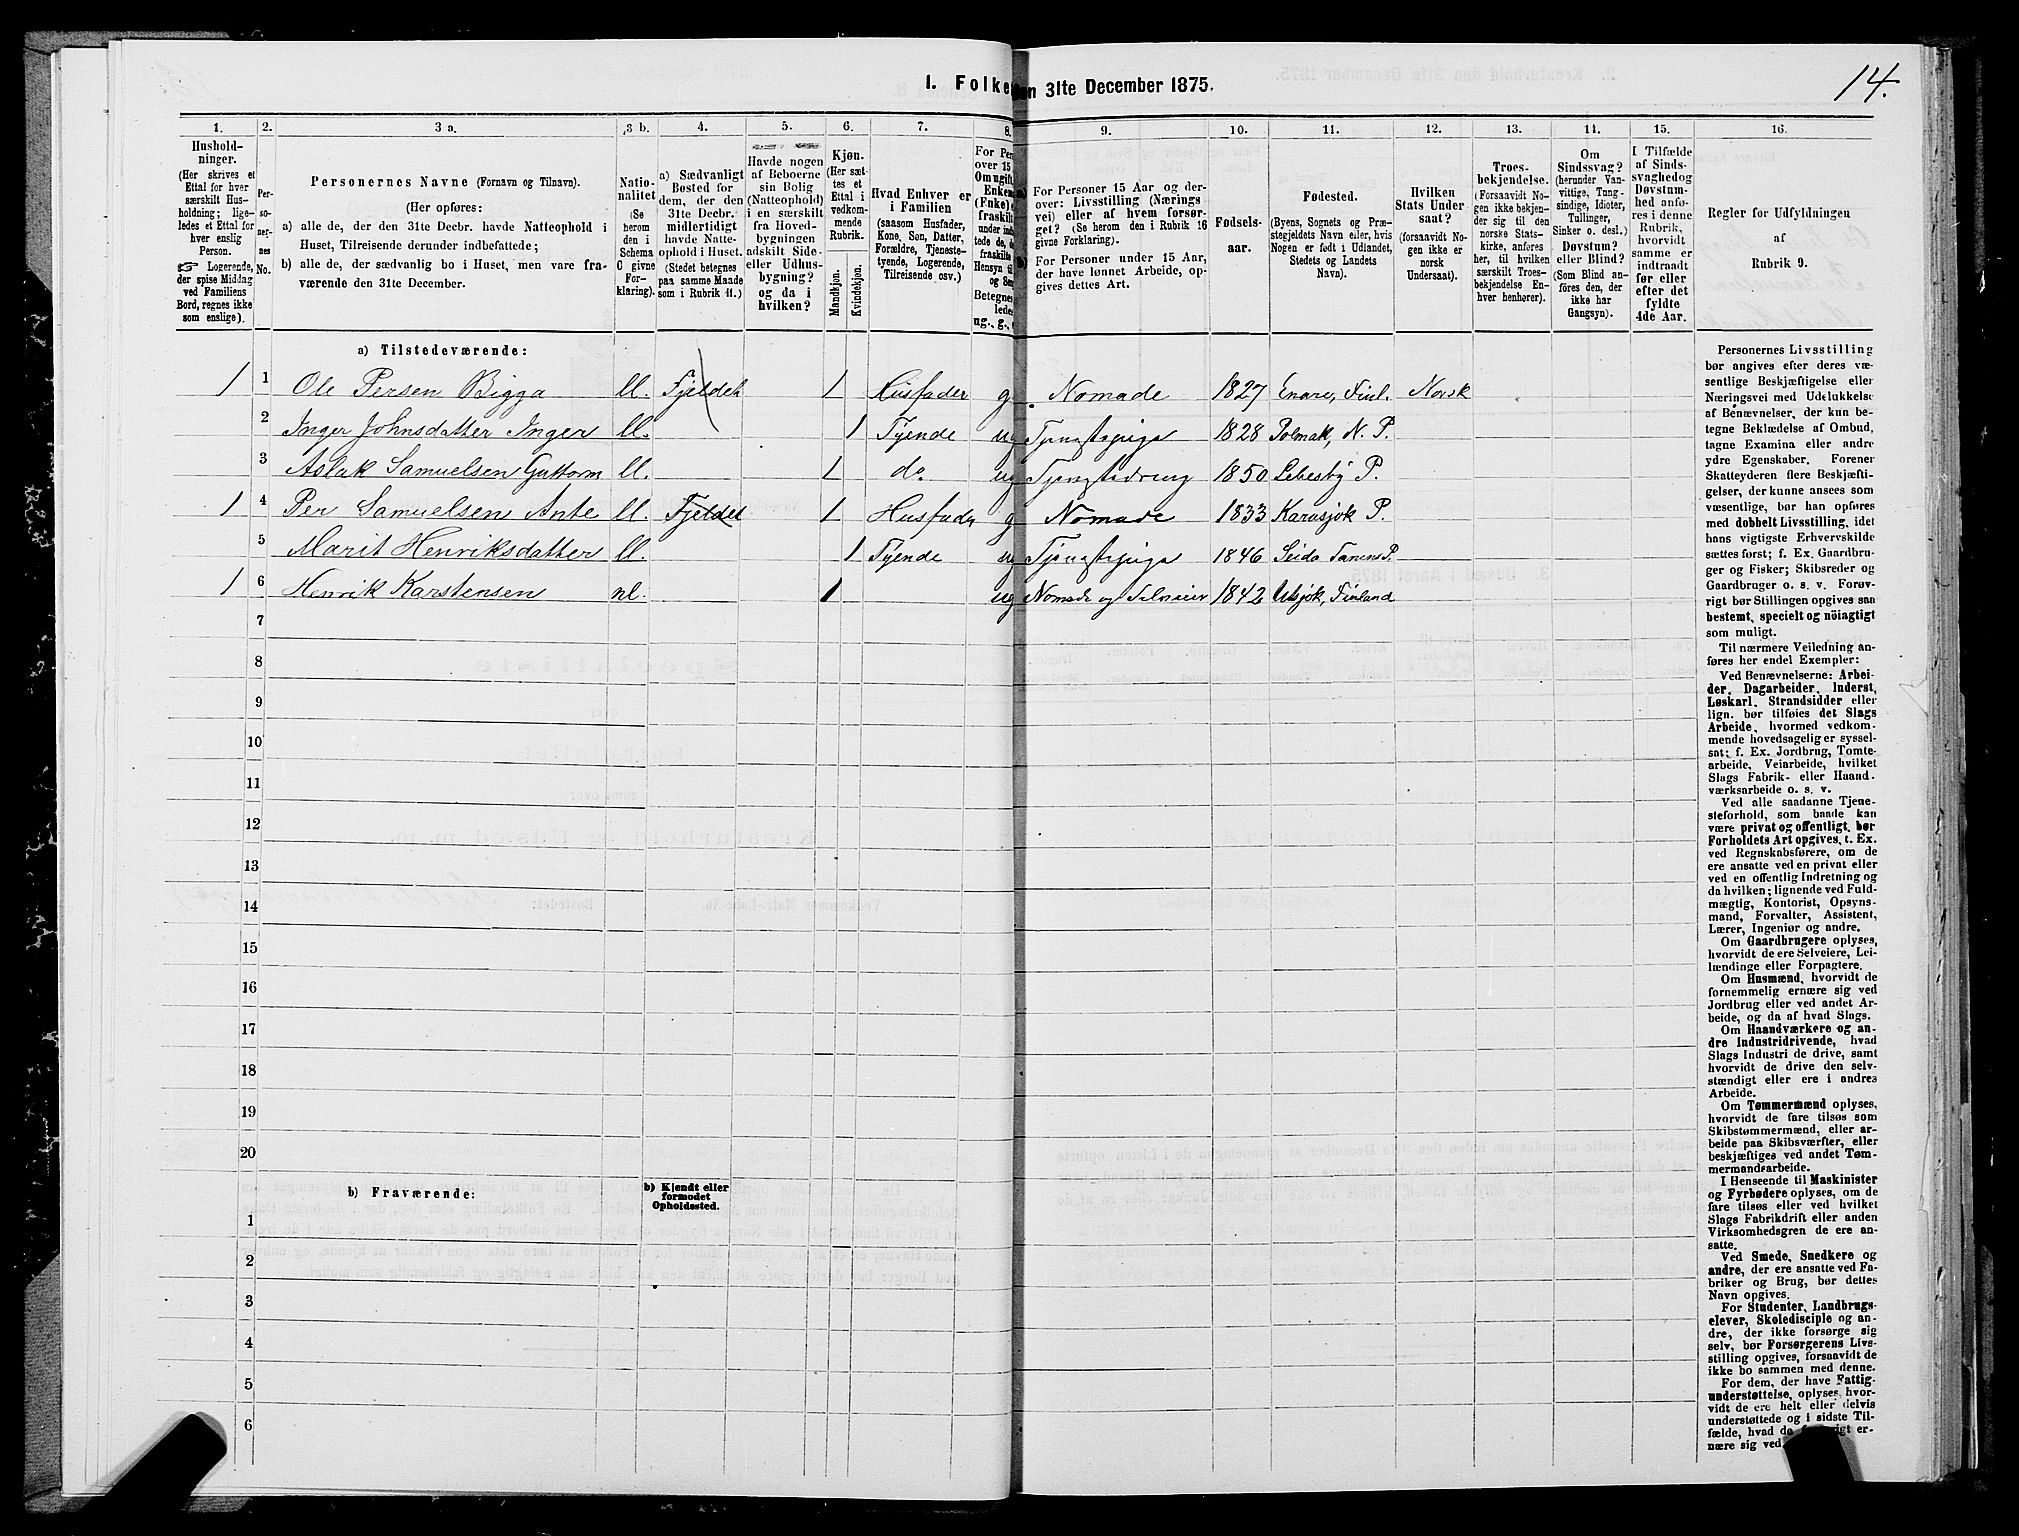 14.
1. Folke en 31te December 1875.
1. 2. 3 a. 3 b. 4. 5. 6. 7. 8. 9. 10. 11. 12. 13. 14. 15. 16.
Hushold-
ninger.
(Her skrives et
Ettal for hver
særskilt Hus-
holdning; lige-
ledes et Ettal for
hver enslig
Person.
☞ Logerende,
der spise Middag
ved Familiens
Bord, regnes ikke
som enslige).
Per-
so-
ner-
nes
No.
Personernes Navne (Fornavn og Tilnavn).
(Her opføres:
a) alle de, der den 31te Decbr. havde Natteophold i
Huset, Tilreisende derunder indbefattede;
b) alle de, der sædvanlig bo i Huset, men vare fra-
værende den 31te December.
Natio-
nalitet
(Se
herom
den i
Schema
O givne
For-
klaring).
a) Sædvanligt
Bosted for
dem, der den
31te Decbr.
midlertidigt
havde Natte-
ophold i Huset.
(Stedet betegnes
paa samme Maade
som i Rubrik 11.)
Havde nogen
af Beboerne
sin Bolig
(Natteophold)
i en særskilt
fra Hoved-
bygningen
adskilt Side-
eller Udhus-
bygning?
og da i
hvilken?
Kjøn.
(Her sæt-
tes et
Ettal i
vedkom-
mende
Rubrik.
Mandkjøn.
Kvindekjøn.
Hvad Enhver er
i Familien
(saasom Husfader,
Kone, Søn, Datter,
Forældre, Tjeneste-
tyende, Logerende,
Tilreisende osv.)
For Per
over 15
Om ugift,
Enken
(Fnke)
fraskilt
under ind
tede de, d
fraskilte
Hensyn til
og Sen
Betegnes
ledes
ug., g.,
For Personer 15 Aar og der-
over: Livsstilling (Nærings
vei) eller af hvem forsør-
get? (Se herom den i Rubrik 16
givne Forklaring).
For Personer under 15 Aar,
der have lønnet Arbeide, op-
gives dettes Art.
Fødsels-
aar.
Fødested.
(Byens, Sognets og Præ-
stegjeldets Navn eller, hvis
Nogen er født i Udlandet,
Stedets og Landets
Navn).
Hvilken
Stats Under
saat?
(forsaavidt No-
gen ikke er
norsk
Undersaat).
Troes-
bekjendelse.
(Forsaavidt No-
gen ikke bekjen-
der sig til den
norske Stats-
kirke, anføres
her, til hvilken
særskilt Troes-
bekjendelse En-
hver henhører).
Om
Sindssvag?
(herunder Van-
vittige, Tung-
sindige, Idioter,
Tullinger,
Sinker o. desl.)
Døvstum?
eller Blind?
(Som Blind an-
føres den, der
ikke har
Gangsyn).
I Tilfælde
af Sinds-
svaghed og
Døvstum-
hed anfø-
res i denne
Rubrik,
hvorvidt
samme er
indtraadt
før eller
efter det
fyldte
4de Aar.
Regler for Udfyldningen
af
Rubrik 9.
a) Tilstedeværende:
1 1 Ole Persen Bigga ll. Fjeldet 1 Husfader g. Nomade 1827 Enare, Finl. Norsk
2 Inger Johnsdatter Inger ll. 1 Tyende ug Tjenestepige 1828 Polmak, N. P.
3 Aslak Samuelsen Guttorm ll. 1 do ug Tjenestedreng 1850 Lebesby P.
1 4 Per Samuelsen Ante ll. Fjeldet 1 Husfader g Nomade 1833 Karasjok P.
5 Marit Henriksdatter ll. 1 Tyende ug Tjenestepige 1846 Seida Tanens P.
1 6 Henrik Karstensen nl. 1 ug Nomade og Selveier 1842 Utsjok, Finland
7
8
9
10
11
12
13
14
15
16
17
18
19
20
b) Fraværende:
b) Kjendt eller
formodet
Opholdssted.
1
2
3
4
5
6
Personernes Livsstilling
bør angives efter deres væ-
sentlige Beskjæftigelse eller
Næringsvei med Udelukkelse
af Benævnelser, der kun be-
tegne Beklædelse af Ombud,
tagne Examina eller andre
ydre Egenskaber. Forener
Skatteyderen flere Beskjæfti-
gelser, der kunne ansees som
væsentlige, bør han opføres
med dobbelt Livsstilling, idet
hans vigtigste Erhvervskilde
sættes først; f. Ex. Gaardbru-
ger og Fisker; Skibsreder og
Gaardbruger o. s. v. Forøv-
rigt bør Stillingen opgives saa
bestemt, specielt og nöiagtigt
som muligt.
Til nærmere Veiledning an-
føres her endel Exempler:
Ved Benævnelserne: Arbei-
der, Dagarbeider, Inderst,
Løskarl, Strandsidder eller
lign. bør tilføies det Slags
Arbeide, hvormed vedkom-
mende hovedsagelig er syssel-
sat; f. Ex. Jordbrug, Tomte-
arbeide, Veiarbeide, hvilket
Slags Fabrik- eller Haand-
værksarbeide o. s. v.
Ved alle saadanne Tjene-
steforhold, som baade kan
være privat og offentligt, bør
Forholdets Art opgives, t. Ex.
ved Regnskabsførere, om de
ere ansatte ved en privat eller
ved en offentlig Indretning og
da hvilken; lignende ved Fuld-
mægtig, Kontorist, Opsyns-
mand, Forvalter, Assistent,
Lærer, Ingeniør og andre.
Om Gaardbrugere oplyses,
hvorvidt de ere Selveiere, Lei-
lændinge eller Forpagtere.
Om Husmænd, hvorvidt de
fornemmelig ernære sig ved
Jordbrug eller ved andet Ar-
beide, og da af hvad Slags.
Om Haandværkere og an-
dre Industridrivende, hvad
Slags Industri de drive, samt
hvorvidt de drive den selv-
stændigt eller ere i andres
Arbeide.
Om Tømmermænd oplyses,
hvorvidt de fare tilsøs som
Skibstømmermænd, eller ar-
beide paa Skibsværfter, eller
beskjæftiges ved andet Tøm-
mermandsarbeide.
I Henseende til Maskinister
og Fyrbødere oplyses, om de
fare tilsøs eller ved hvilket
Slags Fabrikdrift eller anden
Virksomhedsgren de ere an-
satte.
Ved Smede, Snedkere og
andre, der ere ansatte ved Fa-
briker og Brug, bør dettes
Navn opgives.
For Studenter, Landbrugs-
elever, Skoledisciple og an-
dre, der ikke forsørge sig
selv, bør Forsørgerens Livs-
stilling opgives, forsaavidt de
ikke bo sammen med denne.
For dem, der have Fattig-
understøttelse, oplyses, hvor-
vidt de ere helt eller delvis
understøttede og i sidste Til-
fælde, hvad de er-
nære sig ved.